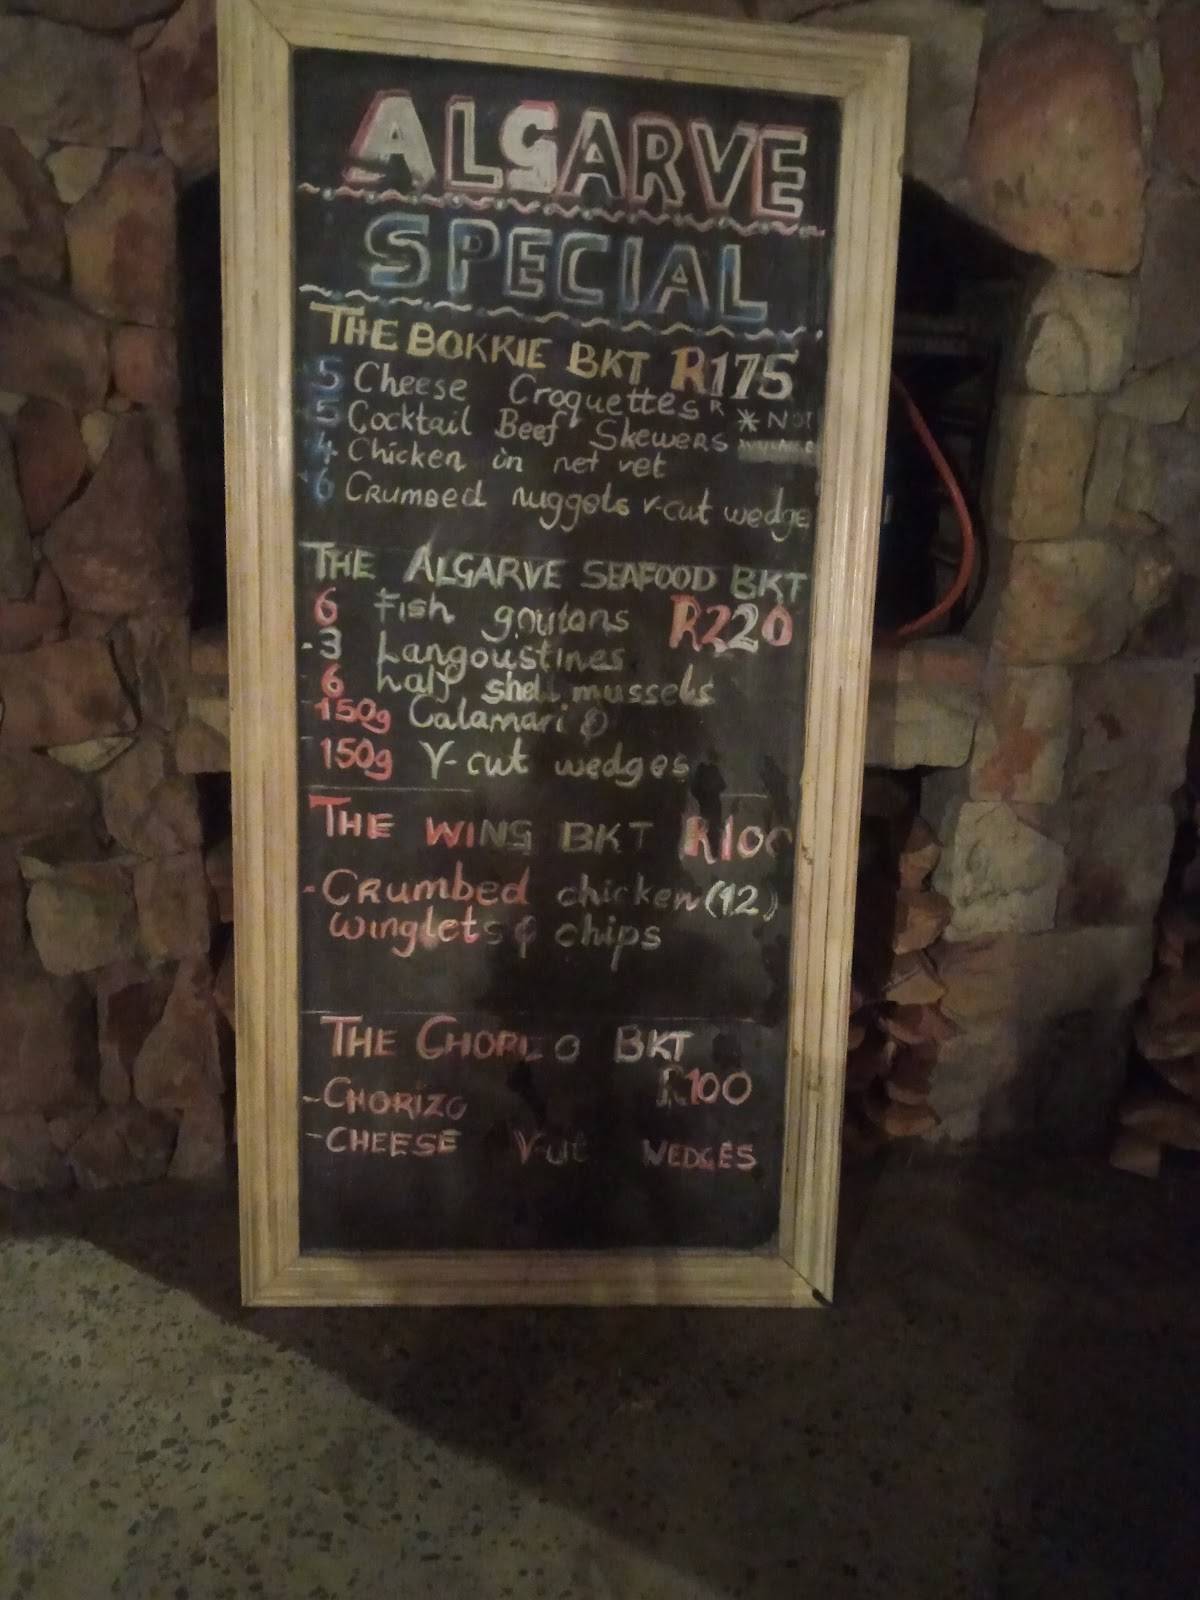 ALGARVE
SPECIAL
THE BOKKIE BKT R175
5 Cheese Croquettes
5 Cocktail Beef Skewers * NOT
4 Chicken in net vet
6 Crumbed nuggets v-cut wedge
THE ALGARVE SEAFOOD BKT
6 Fish goujons R220
-3 Langoustines
6 half shell mussels
150g Calamari &
150g V-cut wedges
THE WING BKT R100
-Crumbed chicken (12)
winglets & chips
THE CHORIZO BKT
R100
-CHORIZO
-CHEESE V-ut WEDGES